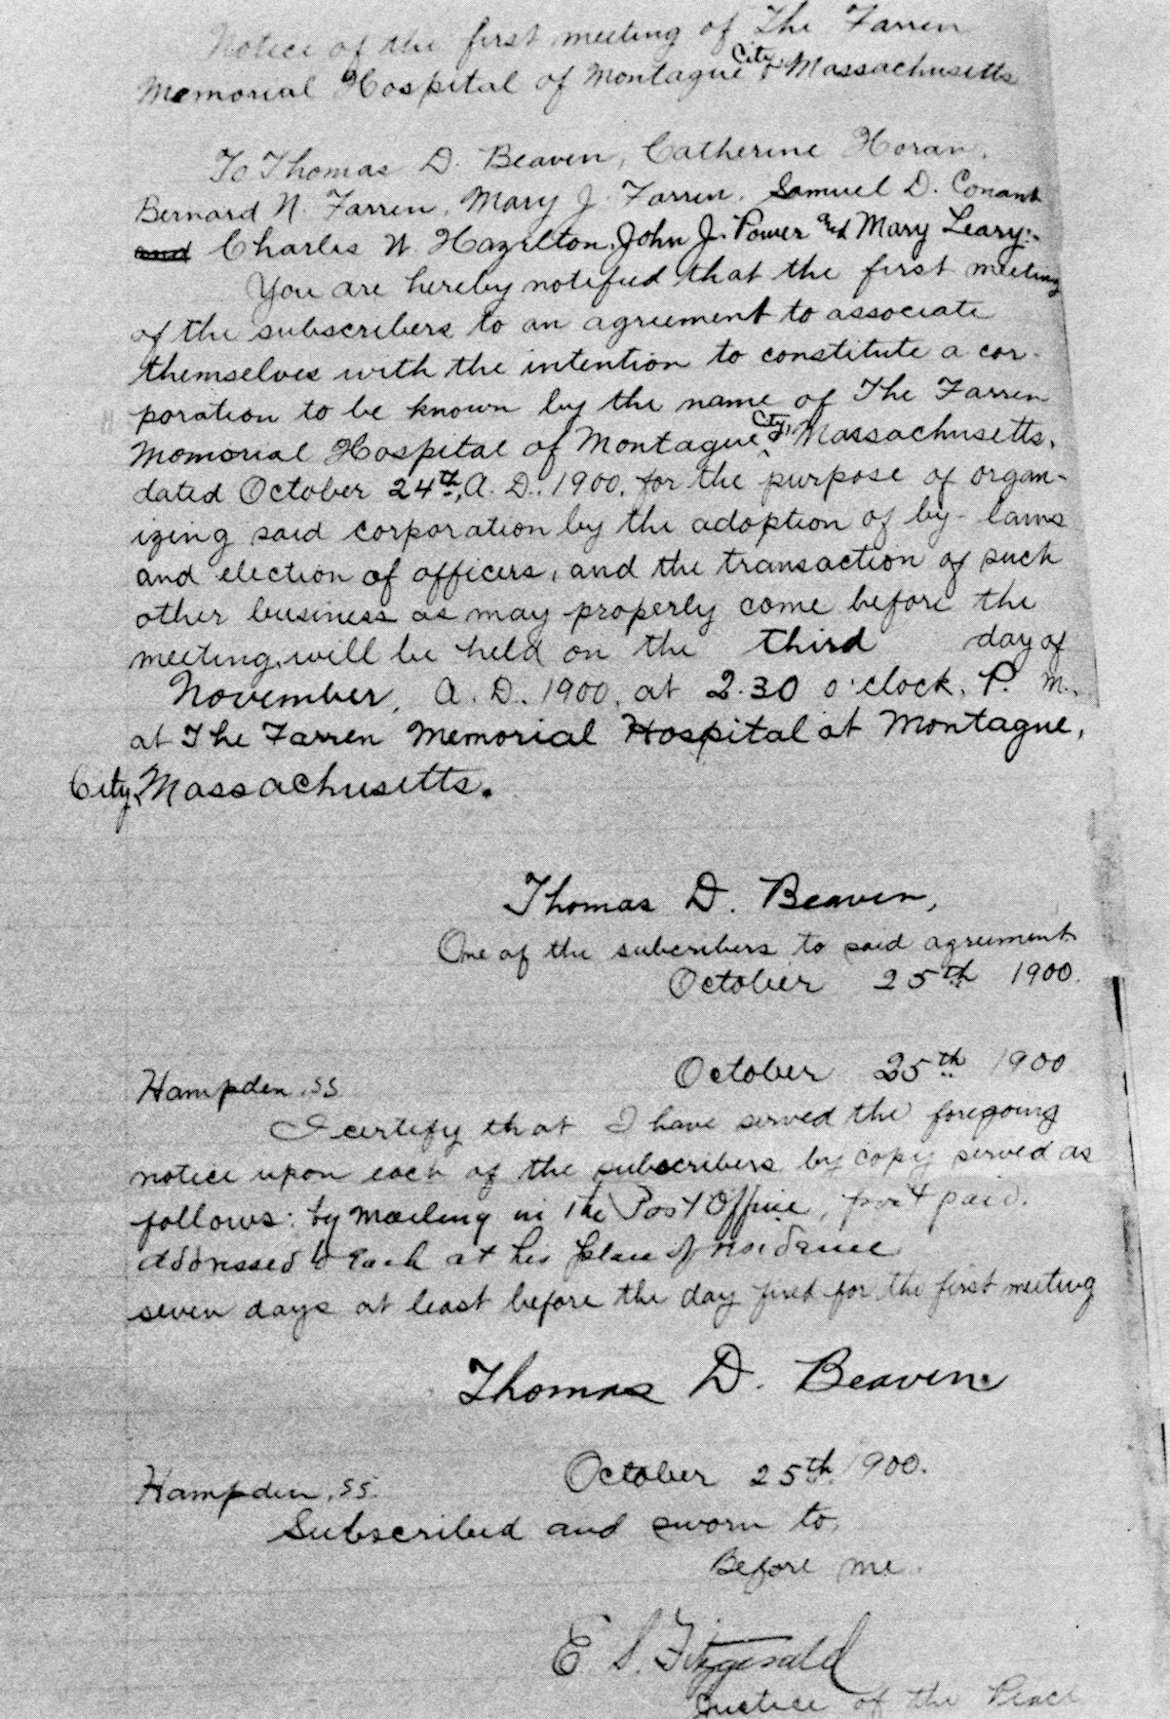 Notice of the first meeting of The Farren
Memorial Hospital of Montague City, Massachusetts
To Thomas D. Beaven, Catherine Horan,
Bernard N. Farren, Mary J. Farren, Samuel D. Conant
and Charles N. Hazelton, John J. Power and Mary Leary:-
You are hereby notified that the first meeting
of the subscribers to an agreement to associate
themselves with the intention to constitute a cor-
poration to be known by the name of The Farren
Memorial Hospital of Montague City, Massachusetts,
dated October 24th, A. D. 1900, for the purpose of organ-
izing said corporation by the adoption of by-laws
and election of officers, and the transaction of such
other business as may properly come before the
meeting, will be held on the third day of
November, A. D. 1900, at 2.30 o'clock, P. M.,
at The Farren Memorial Hospital at Montague,
City, Massachusetts.
Thomas D. Beaven,
One of the subcribers to said agreement
October 25th 1900.
October 25th 1900
Hampden, SS
I certify that I have served the foregoing
notice upon each of the subscribers by copy served as
follows: by mailing in the Post Office, post paid.
addressed to each at his place of residence
seven days at least before the day fixed for the first meeting
Thomas D. Beaven
October 25th 1900.
Hampden, SS.
Subscribed and sworn to,
Before me.
E. S. Fitzgerald
Justice of the Peace